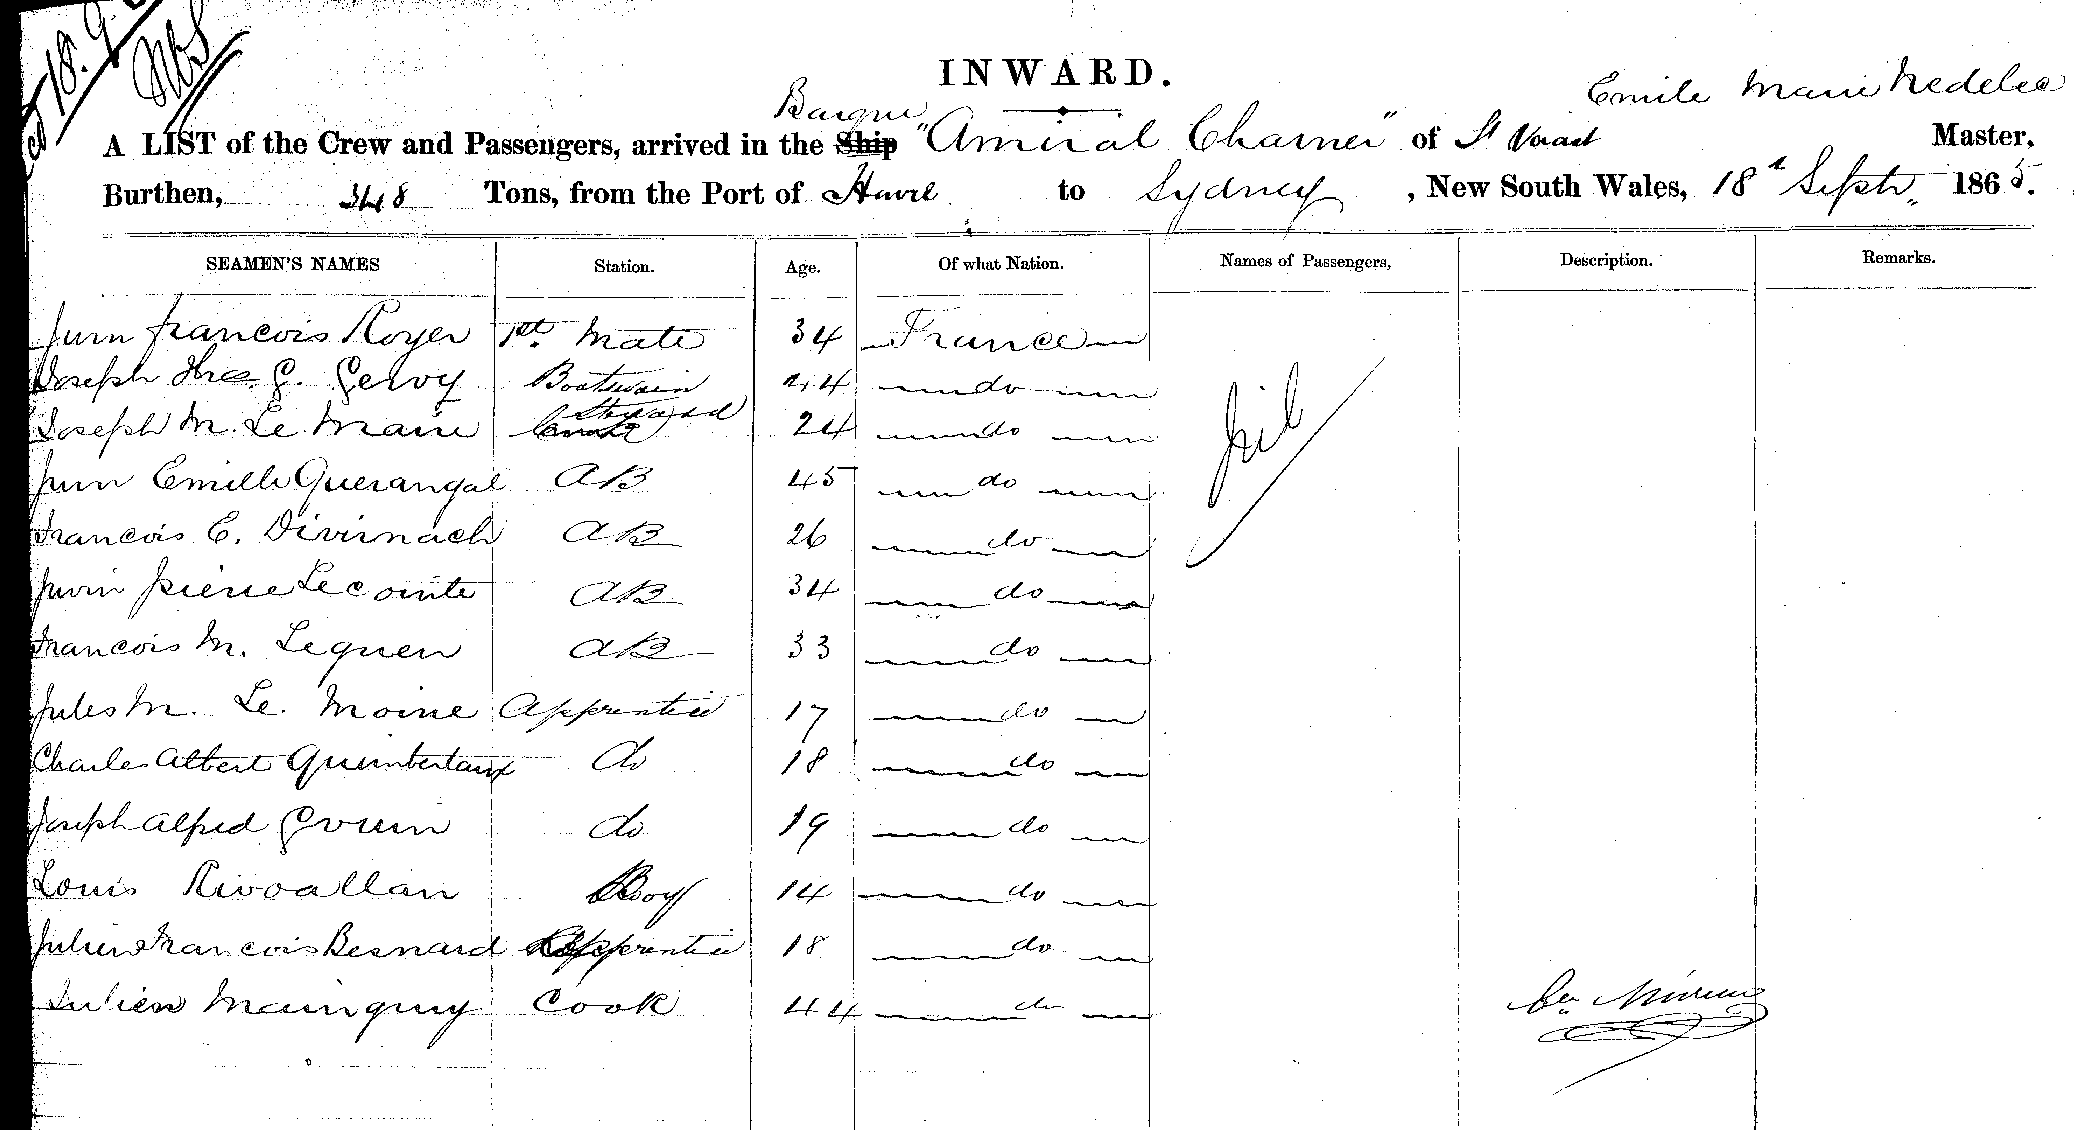 18. 9
INWARD.
Barque Emile Marie Nedelec
A LIST of the Crew and Passengers, arrived in the Ship "Amiral Charner" of St Master,
Burthen, 348 Tons, from the Port of Havre to Sydney, New South Wales, 18th Septr. 1865.
SEAMEN'S NAMES Station. Age. Of what Nation. Names of Passengers, Description. Remarks.
francois Royer 1st Mate 34 France
Joseph Boatswain 44 do
Steward
Joseph M. Le Maire Cook 24 do
Nil
Emille Querangal AB 45 do
Francois C. AB 26 do
pierre Lecomte AB 34 do
Francois M. Lequen AB 33 do
Jules M. Le. Moine Apprentice 17 do
Charles Albert do 18 do
Joseph Alfred do 19 do
Louis Rivoallan Boy 14 do
Julien Francois Besnard Apprentice 18 do
Julien Mainguy Cook 44 do